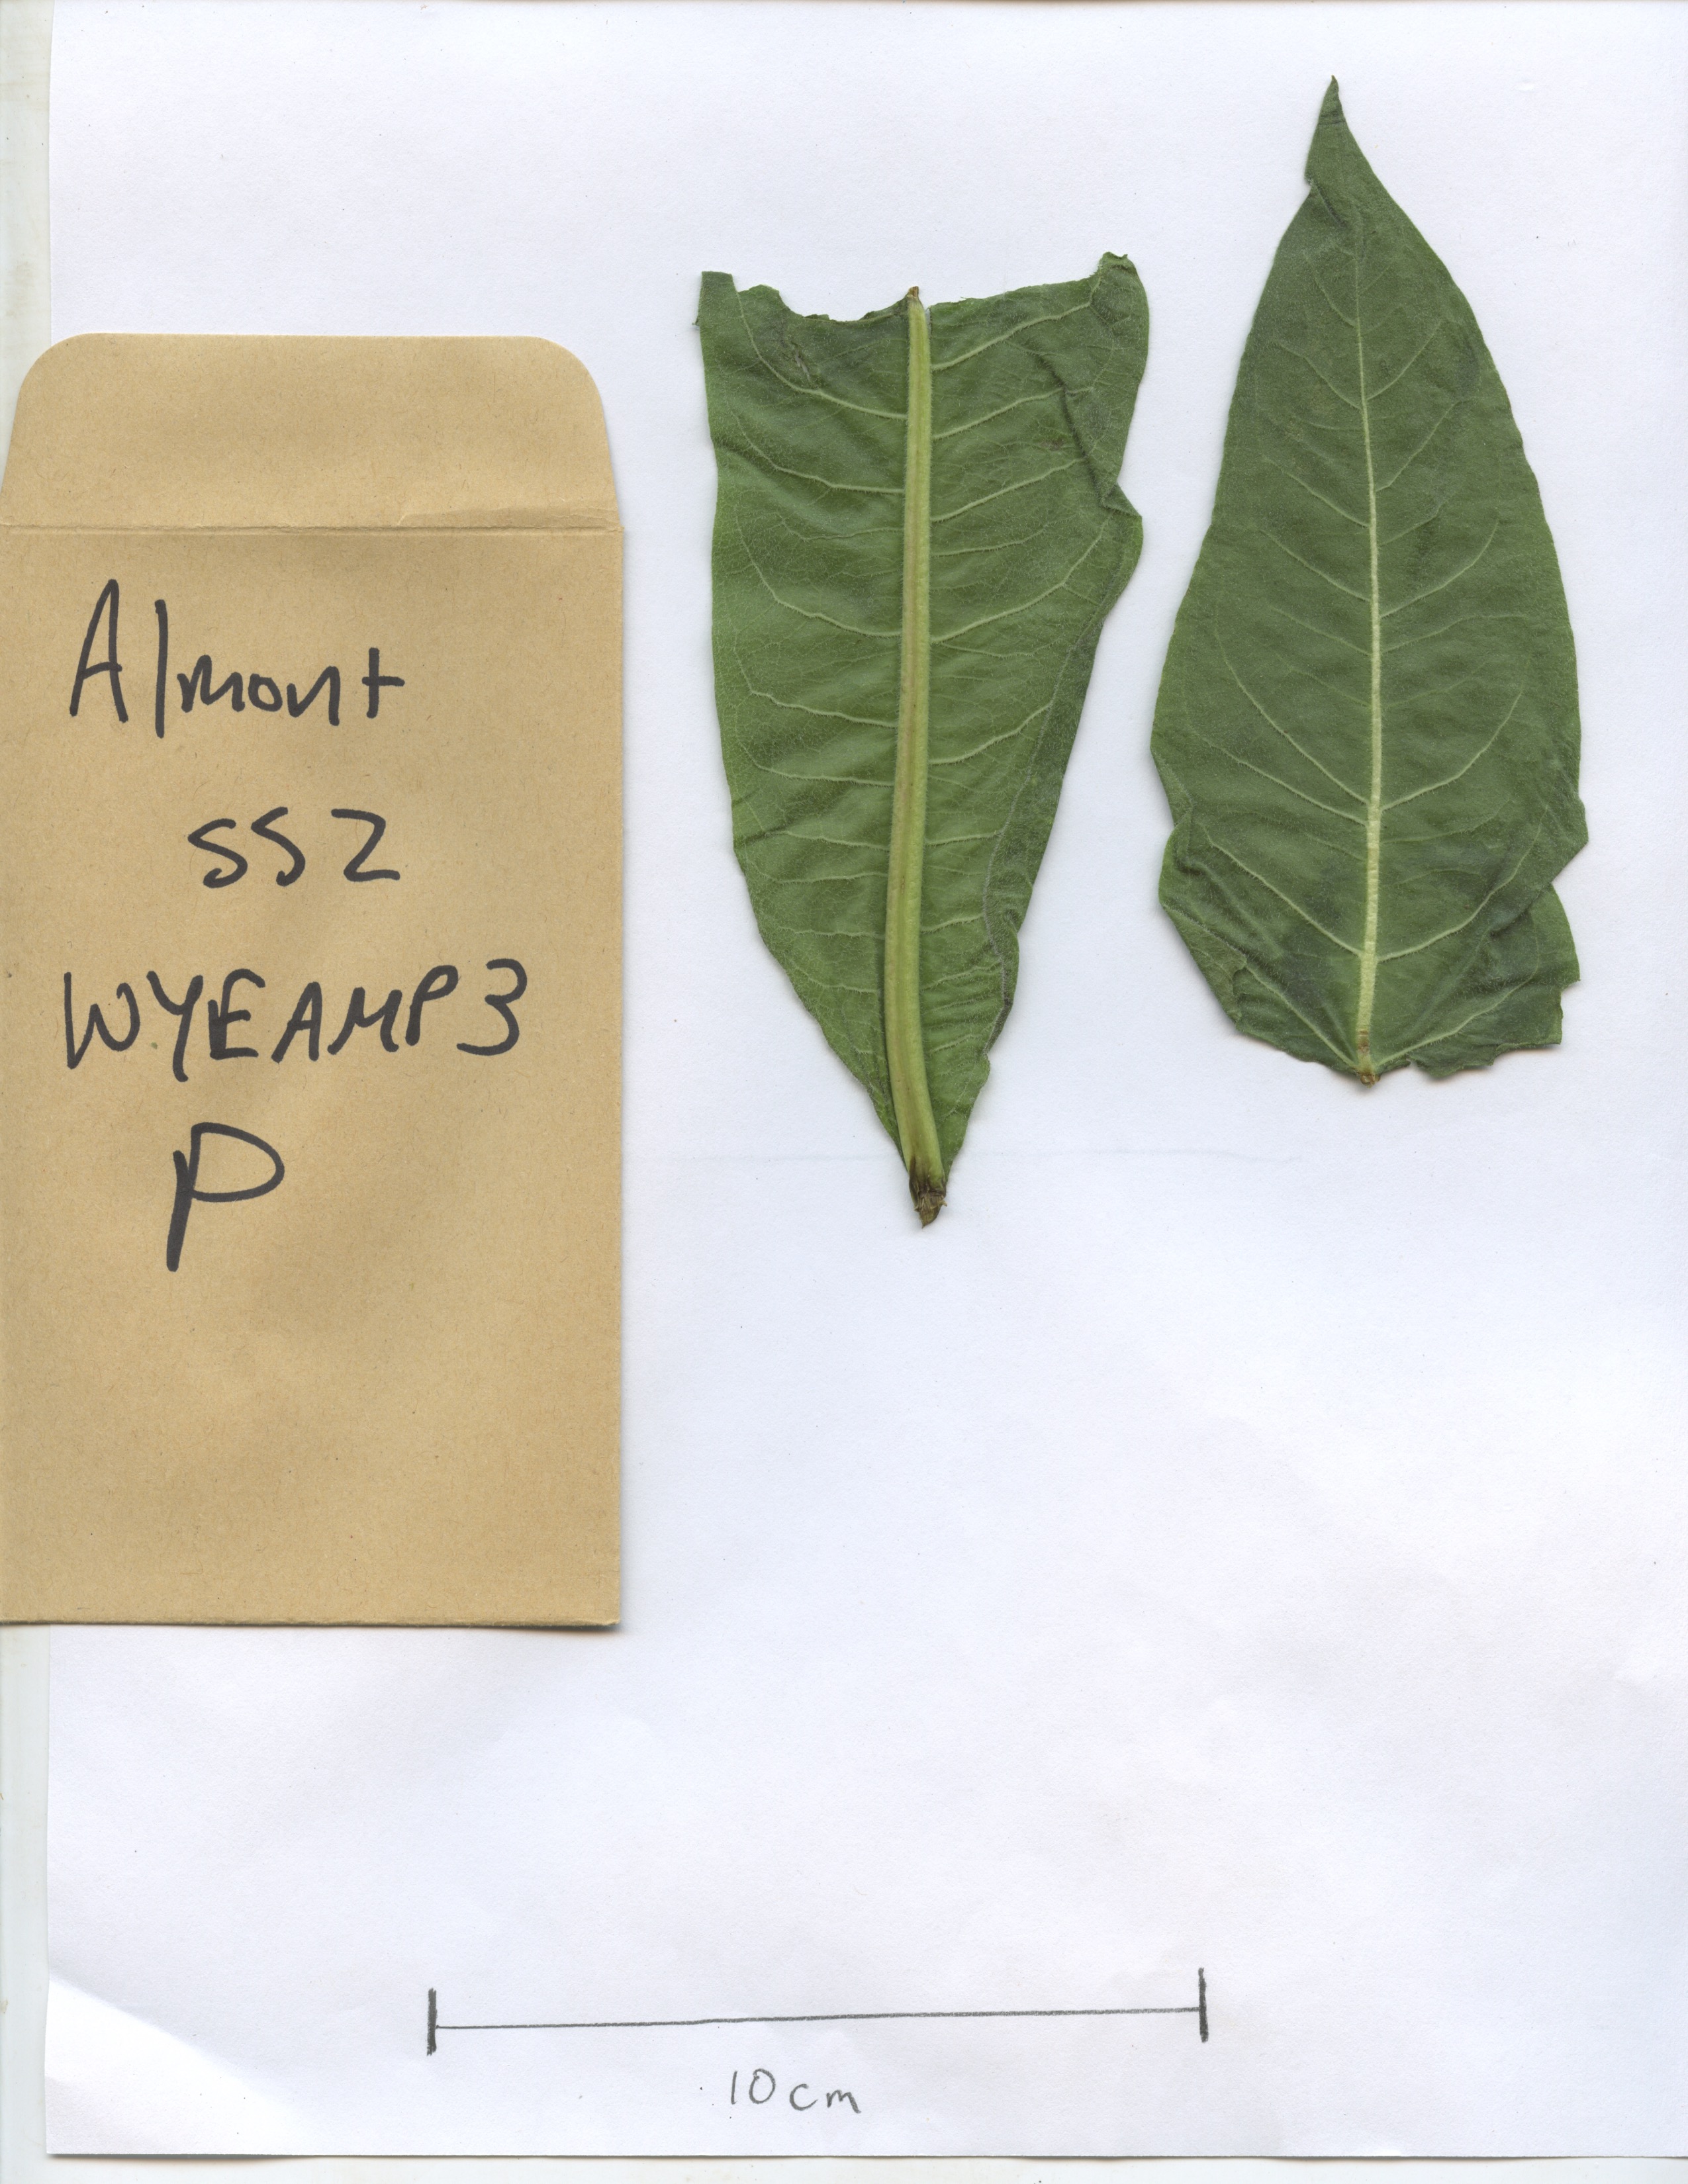 Almont
SS2
WYEAMP3
P
10cm